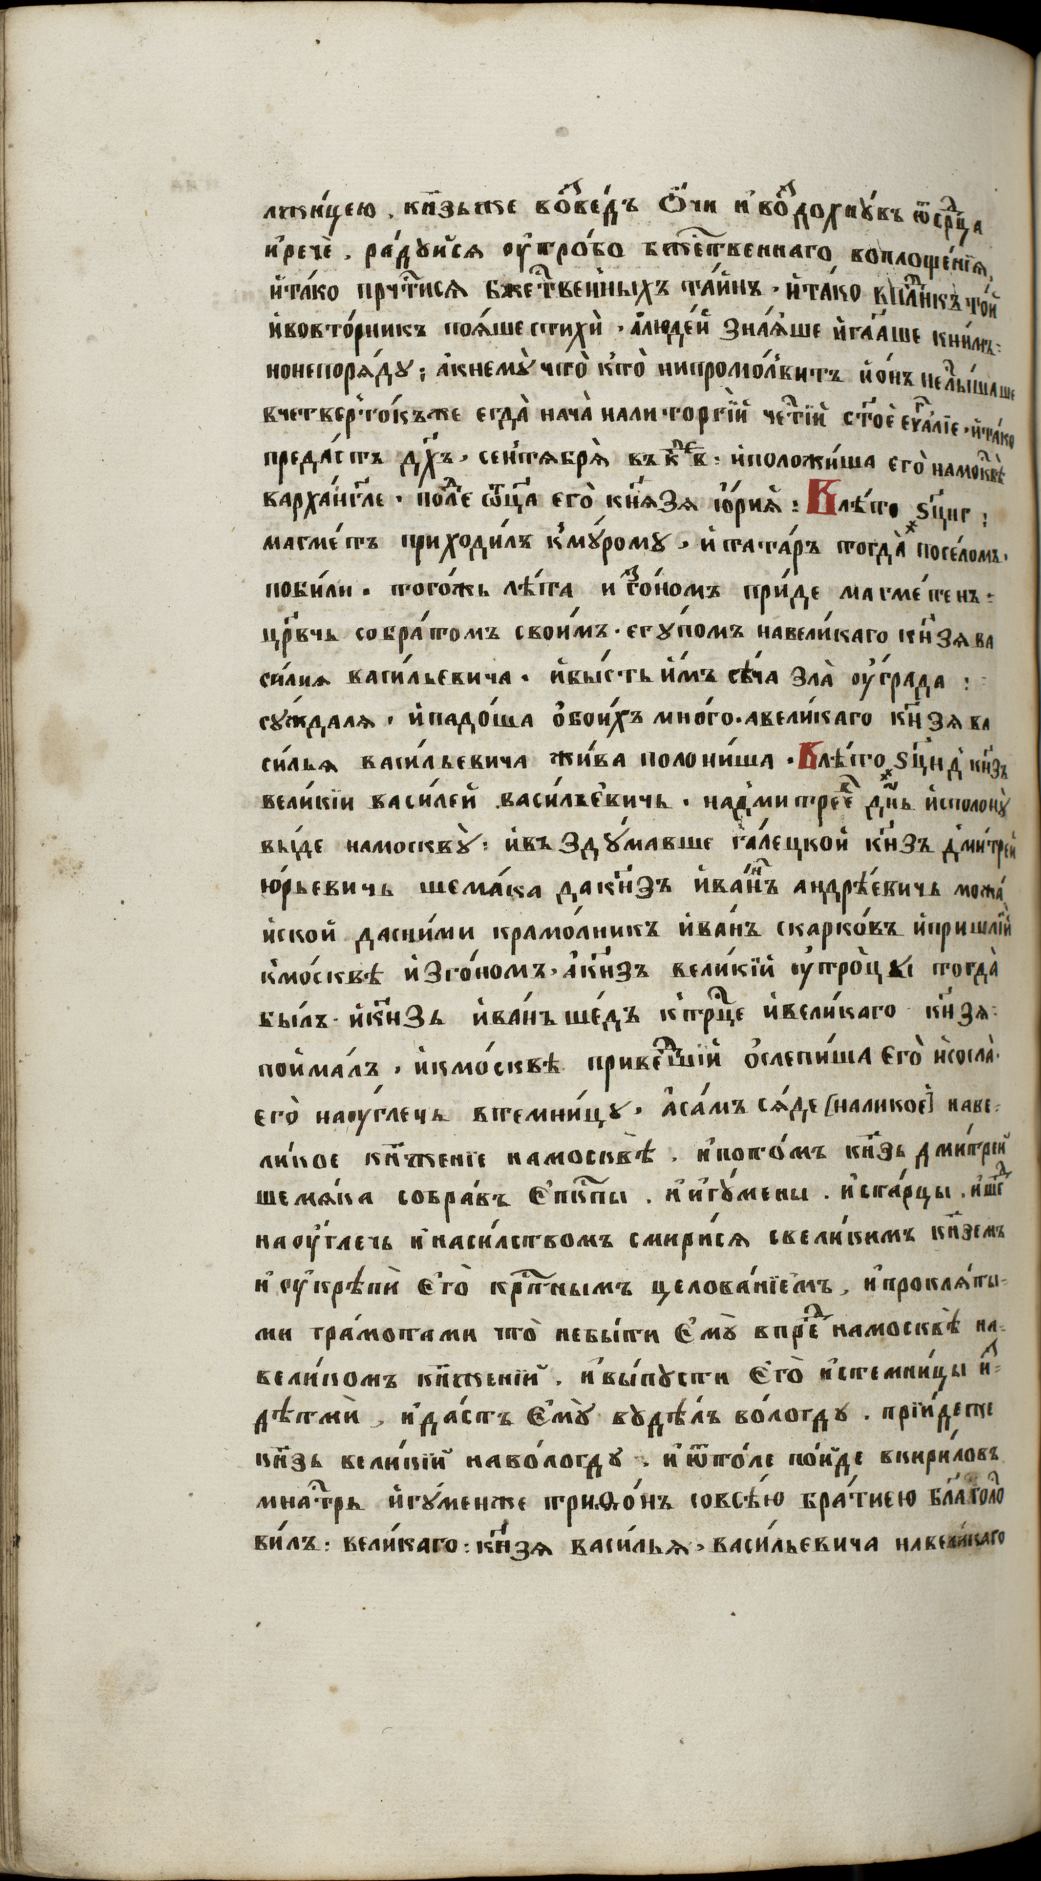 лжи́цею . кн҃зьже во́ⷥведъ Ѻ́чи и҆во́ⷥдохну́въ ѿсрⷣца
и҆речѐ . ра́дуйсѧ ᲂу҆тро́бо бжⷭ҇твеннаго воплоще́нїѧ
и҆та́ко прчⷭ҇тисѧ бжеⷭ҇твенныхъ та́йнъ · и҆та́ко впѧⷮникъ то́й
и҆вовто́рникъ поѧ́ше стихѝ · а҆люде́й знаѧ́ше и҆гл҃аше кни́мъ:
нонепорѧ́ду ; а҆кнемꙋ̀ что̀ кто̀ нипромо́лвитъ и҆о́нъ неⷭ҇лы́шаше
вчетверто́къже егда̀ нача̀ нали·торгі́й чеⷭ҇ті́й ст҃ое еѵⷢ҇аліе · и҆та́ко
преда́стъ дх҃ъ · сентѧбрѧ̀ въ к҃в : и҆положи́ша его̀ намоⷭ҇квѣ̀
варха́нгле · поⷣле ѿц҃а его̀ кн҃ѧзѧ ю҆́риѧ : Влѣ́то ѕц҃нг :
магме́тъ приходи́лъ кму́рому · и҆ тата́ръ тогда̀ посе́ломъ ·
поби́ли . того́жь лѣ́та и ꙁго́номъ прі́де магме́тенъ :
црⷭ҇вчь собра́томъ свои́мъ · егу́помъ навели́каго кн҃зѧ ва
си́лиѧ васи́льевича . и҆бы́сть и҆́мъ сѣ́ча зла̀ ᲂу҆гра́да :
су́ждалѧ · и҆падо́ша о҆бои́хъ мно́го . авели́каго кн҃зѧ ва
си́льѧ васи́льевича жи́ва полони́ша . Влѣ́то ѕц҃нд кн҃зь
великі́и васи́лей васи́льевичь · надмитреⷡ҇е дн҃ь и҆сполонꙋ̀
вы́де намосквꙋ̀ : и҆въздꙋ́мавше га́лецкой кн҃зъ дми́трей
ю́рьевичь шема́ка дакн҃зъ и҆ва́нъ андрѣ́евичь можа́
йской дасни́ми крамо́лникъ и҆ва́нъ скарко́въ и҆пришлі́и
кмо́сквѣ и҆зго́номъ · а҆кн҃зъ вели́кїй ᲂу҆тро́цы тогда̀
бы́лъ · и҆кн҃зь и҆ва́нъ ше́дъ ктрⷪ҇це и҆вели́каго кн҃зѧ :
пойма́лъ · и҆кмо́сквѣ приве́ⷣшїй о҆слепи́ша его̀ и҆сосла̀ ·
его̀ наꙋ́глечь втемни́цу · а҆са́мъ сѧ́де [наликое] наве :
ли́кое кн҃женїе намосквѣ̀ . и҆пото́мъ кн҃зь дми́трей
шемѧ́ка собра́въ Е҆пкⷭ҇пы . и҆и҆гꙋ́мены . и҆ста́рцы . и҆шⷣе
наᲂу҆́глечь и҆наси́лством смири́сѧ свели́кимъ кн҃земъ
и҆ᲂу҆крѣпѝ Е҆го̀ крⷭ҇тнымъ целова́нїемъ , и҆проклѧ́ты-
ми гра́мотами что̀ небы́ти Е҆мꙋ̀ впреⷣ намосквѣ̀ на-
вели́комъ кн҃женїй . и҆вы́пусти Е҆го̀ и҆стемни́цы и҆ⷥ-
дѣтмѝ , и҆да́стъ Е҆мꙋ̀ вудѣ́лъ во́логду . прїи́деже
кн҃зь вели́кїй наво́логду . и҆ѿто́ле по́йде вкири́ловъ
мнаⷭ҇трь и҆гу́менже три́ѳонъ совсѣ́ю бра́тиею блⷭ҇агоⷭ҇ло
ви́лъ : вели́каго : кн҃зѧ васи́льѧ · васи́льевича навели́каго